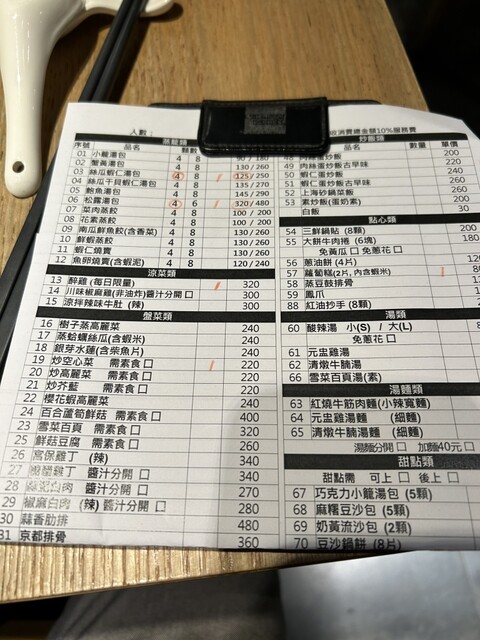 人數：
收消費總金額10%服務費
序號 蒸籠類
品名 顆數
01 小籠湯包 4 8 90 / 180
02 蟹黃湯包 4 8 130 / 260
03 絲瓜蝦仁湯包 4 8 125 / 250
04 絲瓜干貝蝦仁湯包 4 8 135 / 270
05 鮑魚湯包 4 8 145 / 290
06 松露湯包 4 6 320 / 480
07 菜肉蒸餃 4 8 100 / 200
08 花素蒸餃 4 8 100 / 200
09 南瓜鮮魚餃(含香菜) 4 8 130 / 260
10 鮮蝦蒸餃 4 8 130 / 260
11 蝦仁燒賣 4 8 130 / 260
12 魚卵燒賣(含蝦泥) 4 8 120 / 240
涼菜類
13 醉雞 (每日限量) 320
14 川味椒麻雞(非油炸)醬汁分開 □ 300
15 涼拌辣味牛肚 (辣) 300
盤菜類
16 樹子蒸高麗菜 240
17 蒸蛤蠣絲瓜(含蝦米) 240
18 銀芽水蓮(含柴魚片) 240
19 炒空心菜 需素食 □ 220
20 炒高麗菜 需素食 □ 220
21 炒芥藍 需素食 □ 220
22 櫻花蝦高麗菜 240
24 百合蘆筍鮮菇 需素食 □ 400
23 雪菜百頁 需素食 □ 320
25 鮮菇豆腐 需素食 □ 260
26 宮保雞丁 (辣) 340
27 雞丁 醬汁分開 □ 340
28 白肉 醬汁分開 □ 270
29 椒麻白肉 (辣) 醬汁分開 □ 280
30 蒜香肋排 480
31 京都排骨 360
炒飯類
品名 數量 單價
48 肉絲蛋炒飯 200
49 肉絲蛋炒飯古早味 220
50 蝦仁蛋炒飯 240
51 蝦仁蛋炒飯古早味 260
52 上海菜飯 240
53 素炒飯(蛋奶素) 200
白飯 30
點心類
54 三鮮鍋貼 (8顆) 200
55 大餅牛肉捲 (6塊) 180
免黃瓜 □ 免蔥花 □
56 蔥油餅 (4片)
57 蘿蔔糕(2片,內含蝦米)
58 蒸豆鼓排骨
59 鳳爪
88 紅油抄手 (8顆)
湯類
60 酸辣湯 小(S) / 大(L)
免蔥花 □
61 元盅雞湯
62 清燉牛腩湯
66 雪菜百頁湯(素)
湯麵類
63 紅燒牛筋肉麵(小辣寬麵)
64 元盅雞湯 (細麵)
65 清燉牛腩湯 (細麵)
湯麵分開 □ 加麵40元 □
甜點類
甜點需 可上 □ 後上 □
67 巧克力小籠湯包 (5顆)
68 麻糬豆沙包 (5顆)
69 奶黃流沙包 (2顆)
70 豆沙鍋餅 (8片)